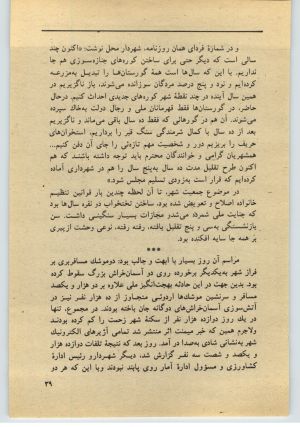 و در شمارهٔ فردای همان روزنامه، شهردار محل نوشت: «اکنون چند
سالی است که دیگر حتی برای ساختن کوره‌های جنازه‌سوزی هم جا
نداریم. با این که سال‌ها است همهٔ گورستان‌ها را تبدیل به‌مزرعه
کرده‌ایم و نود و پنج درصد مردگان سوزانده می‌شوند، باز ناگزیریم در
همین سال آینده در چند نقطهٔ شهر کوره‌های جدیدی احداث کنیم. درحال
حاضر، در گورستان‌ها فقط قهرمانان ملی و رجال دولت به‌خاک سپرده
می‌شوند. آن هم در گورهائی که فقط ده سال باقی می‌ماند و ناگزیریم
بعد از ده سال با کمال شرمندگی سنگ قبر را برداریم، استخوان‌های
حریف را بریزیم دور و شخصیت مهم تازه‌ئی را جای آن دفن کنیم...
همشهریان گرامی و خوانندگان محترم باید توجه داشته باشند که هم
اکنون طرح تقلیل مدت ده سال به‌پنج سال را هم در شهرداری آماده
کرده‌ایم که قرار است به‌زودی تسلیم مجلس شود.»
در موضوع جمعیت شهر، تا آن لحظه چندین بار قوانین تنظیم
خانواده اصلاح و تعویض شده بود. ساختن تختخواب دو نفره سال‌ها بود
که جنایت ملی شمرده می‌شد و مجازات بسیار سنگینی داشت. سن
بازنشستگی به‌سی و پنج تقلیل یافته، رفته رفته، نوعی وحشت از پیری
بر همه جا سایه افکنده بود.
***
مراسم آن روز بسیار با ابهت و جالب بود: دو موشک مسافربری بر
فراز شهر به‌یکدیگر برخورده روی دو آسمان‌خراش بزرگ سقوط کرده
بود. بدین جهت در این حادثه بهجت‌انگیز ملی علاوه بر دو هزار و یکصد
مسافر و سرنشین موشک‌ها اردوئی متجاوز از ده هزار نفر نیز در
آتش‌سوزی آسمان‌خراش‌های دوگانه جان باخته بودند. در مجموع، تنها
در یک روز دوازده هزار نفر از سکنهٔ شهر زحمت را کم کرده بودند
ولاجرم همین که خبر میمنت اثر منتشر شد تمامی آژیرهای الکترونیک
شهر به‌نشانی شادی به‌صدا در آمد. روز بعد که نتیجهٔ تلفات دوازده هزار
و یکصد و شصت و سه نفر گزارش شد، دیگر شهردار و رئیس ادارهٔ
کشاورزی و مسؤول ادارهٔ آمار روی پابند نبودند و با این که هر دو
۳۹